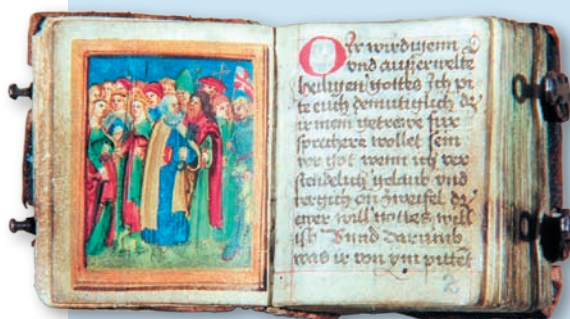 O Ir wirdigenn
vnd außerwelte
heiligen gottes Ich pi
te euch demutiglich da
ir mein getrewe fur
sprechere wollet sein
vor got wenn ich ver
stendclich gelaub vnd
vergich on zweifel da
ewer will gottes will
ist Vnnd darumb
was ir von ym pittet
2